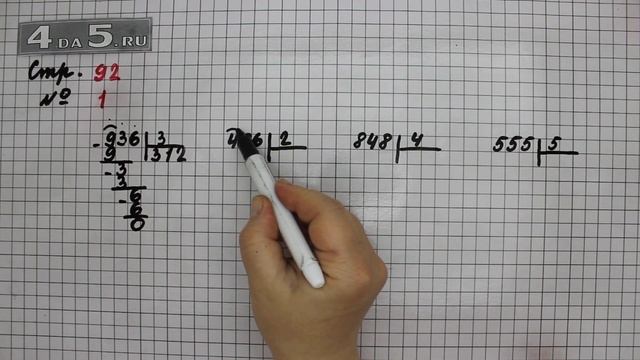 4DA5.RU
Стр. 92
№ 1
- 936 | 3
9 | 312
- 3
3
- 6
6
0
6 | 2
848 | 4
555 | 5